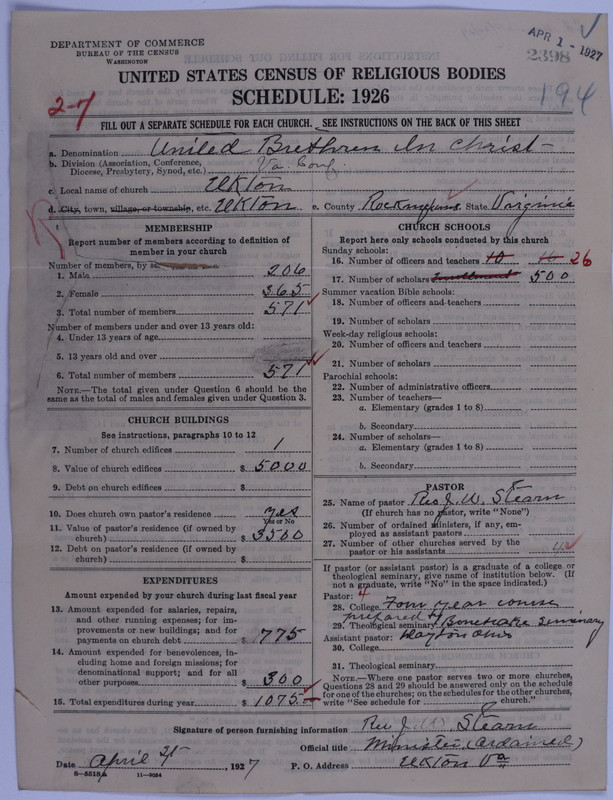 DEPARTMENT OF COMMERCE
BUREAU OF THE CENSUS
WASHINGTON
APR 1 - 1927
2398
194
UNITED STATES CENSUS OF RELIGIOUS BODIES
SCHEDULE: 1926
2-7
FILL OUT A SEPARATE SCHEDULE FOR EACH CHURCH. SEE INSTRUCTIONS ON THE BACK OF THIS SHEET
a. Denomination United Brethren In Christ
b. Division (Association, Conference, Diocese, Presbytery, Synod, etc.) Va. Conf.
c. Local name of church Elkton
d. City, town, village, or township, etc. Elkton e. County Rockingham State Virginia
MEMBERSHIP
Report number of members according to definition of
member in your church
Number of members, by sex:
1. Male 206
2. Female 365
3. Total number of members 571
Number of members under and over 13 years old:
4. Under 13 years of age
5. 13 years old and over
6. Total number of members 571
NOTE.—The total given under Question 6 should be
same as the total of males and females given under Question 3.
CHURCH BUILDINGS
See instructions, paragraphs 10 to 12
7. Number of church edifices 1
8. Value of church edifices $ 5000
9. Debt on church edifices $
10. Does church own pastor's residence yes
Yes or No
11. Value of pastor's residence (if owned by
church) $ 3500
12. Debt on pastor's residence (if owned by
church) $
EXPENDITURES
Amount expended by your church during last fiscal year
13. Amount expended for salaries, repairs,
and other running expenses; for im-
provements or new buildings; and for
payments on church debt $ 775
14. Amount expended for benevolences, in-
cluding home and foreign missions; for
denominational support; and for all
other purposes $ 300
15. Total expenditures during year $ 1075.
CHURCH SCHOOLS
Report here only schools conducted by this church
Sunday schools:
16. Number of officers and teachers 10 16 26
17. Number of scholars 500
Summer vacation Bible schools:
18. Number of officers and teachers
19. Number of scholars
Week-day religious schools:
20. Number of officers and teachers
21. Number of scholars
Parochial schools:
22. Number of administrative officers
23. Number of teachers—
a. Elementary (grades 1 to 8)
b. Secondary
24. Number of scholars—
a. Elementary (grades 1 to 8)
b. Secondary
PASTOR
25. Name of pastor Rev J. W. Stearn
(If church has no pastor, write "None")
26. Number of ordained ministers, if any, em-
ployed as assistant pastors
27. Number of other churches served by the
pastor or his assistants 4
If pastor (or assistant pastor) is a graduate of a college or
theological seminary, give name of institution below. (If
not a graduate, write "No" in the space indicated.)
Pastor: 4
28. College Four year course
prepared
29. Theological seminary Bonebrake Seminary
Assistant pastor: Dayton Ohio
30. College
31. Theological seminary
NOTE.—Where one pastor serves two or more churches,
Questions 28 and 29 should be answered only on the schedule
for one of the churches; on the schedules for the other churches,
write "See schedule for church."
Signature of person furnishing information Rev J. W. Stearn
Official title Minister (Ordained)
Date April 1927 P. O. Address Elkton Va
8-5518a 11-9054